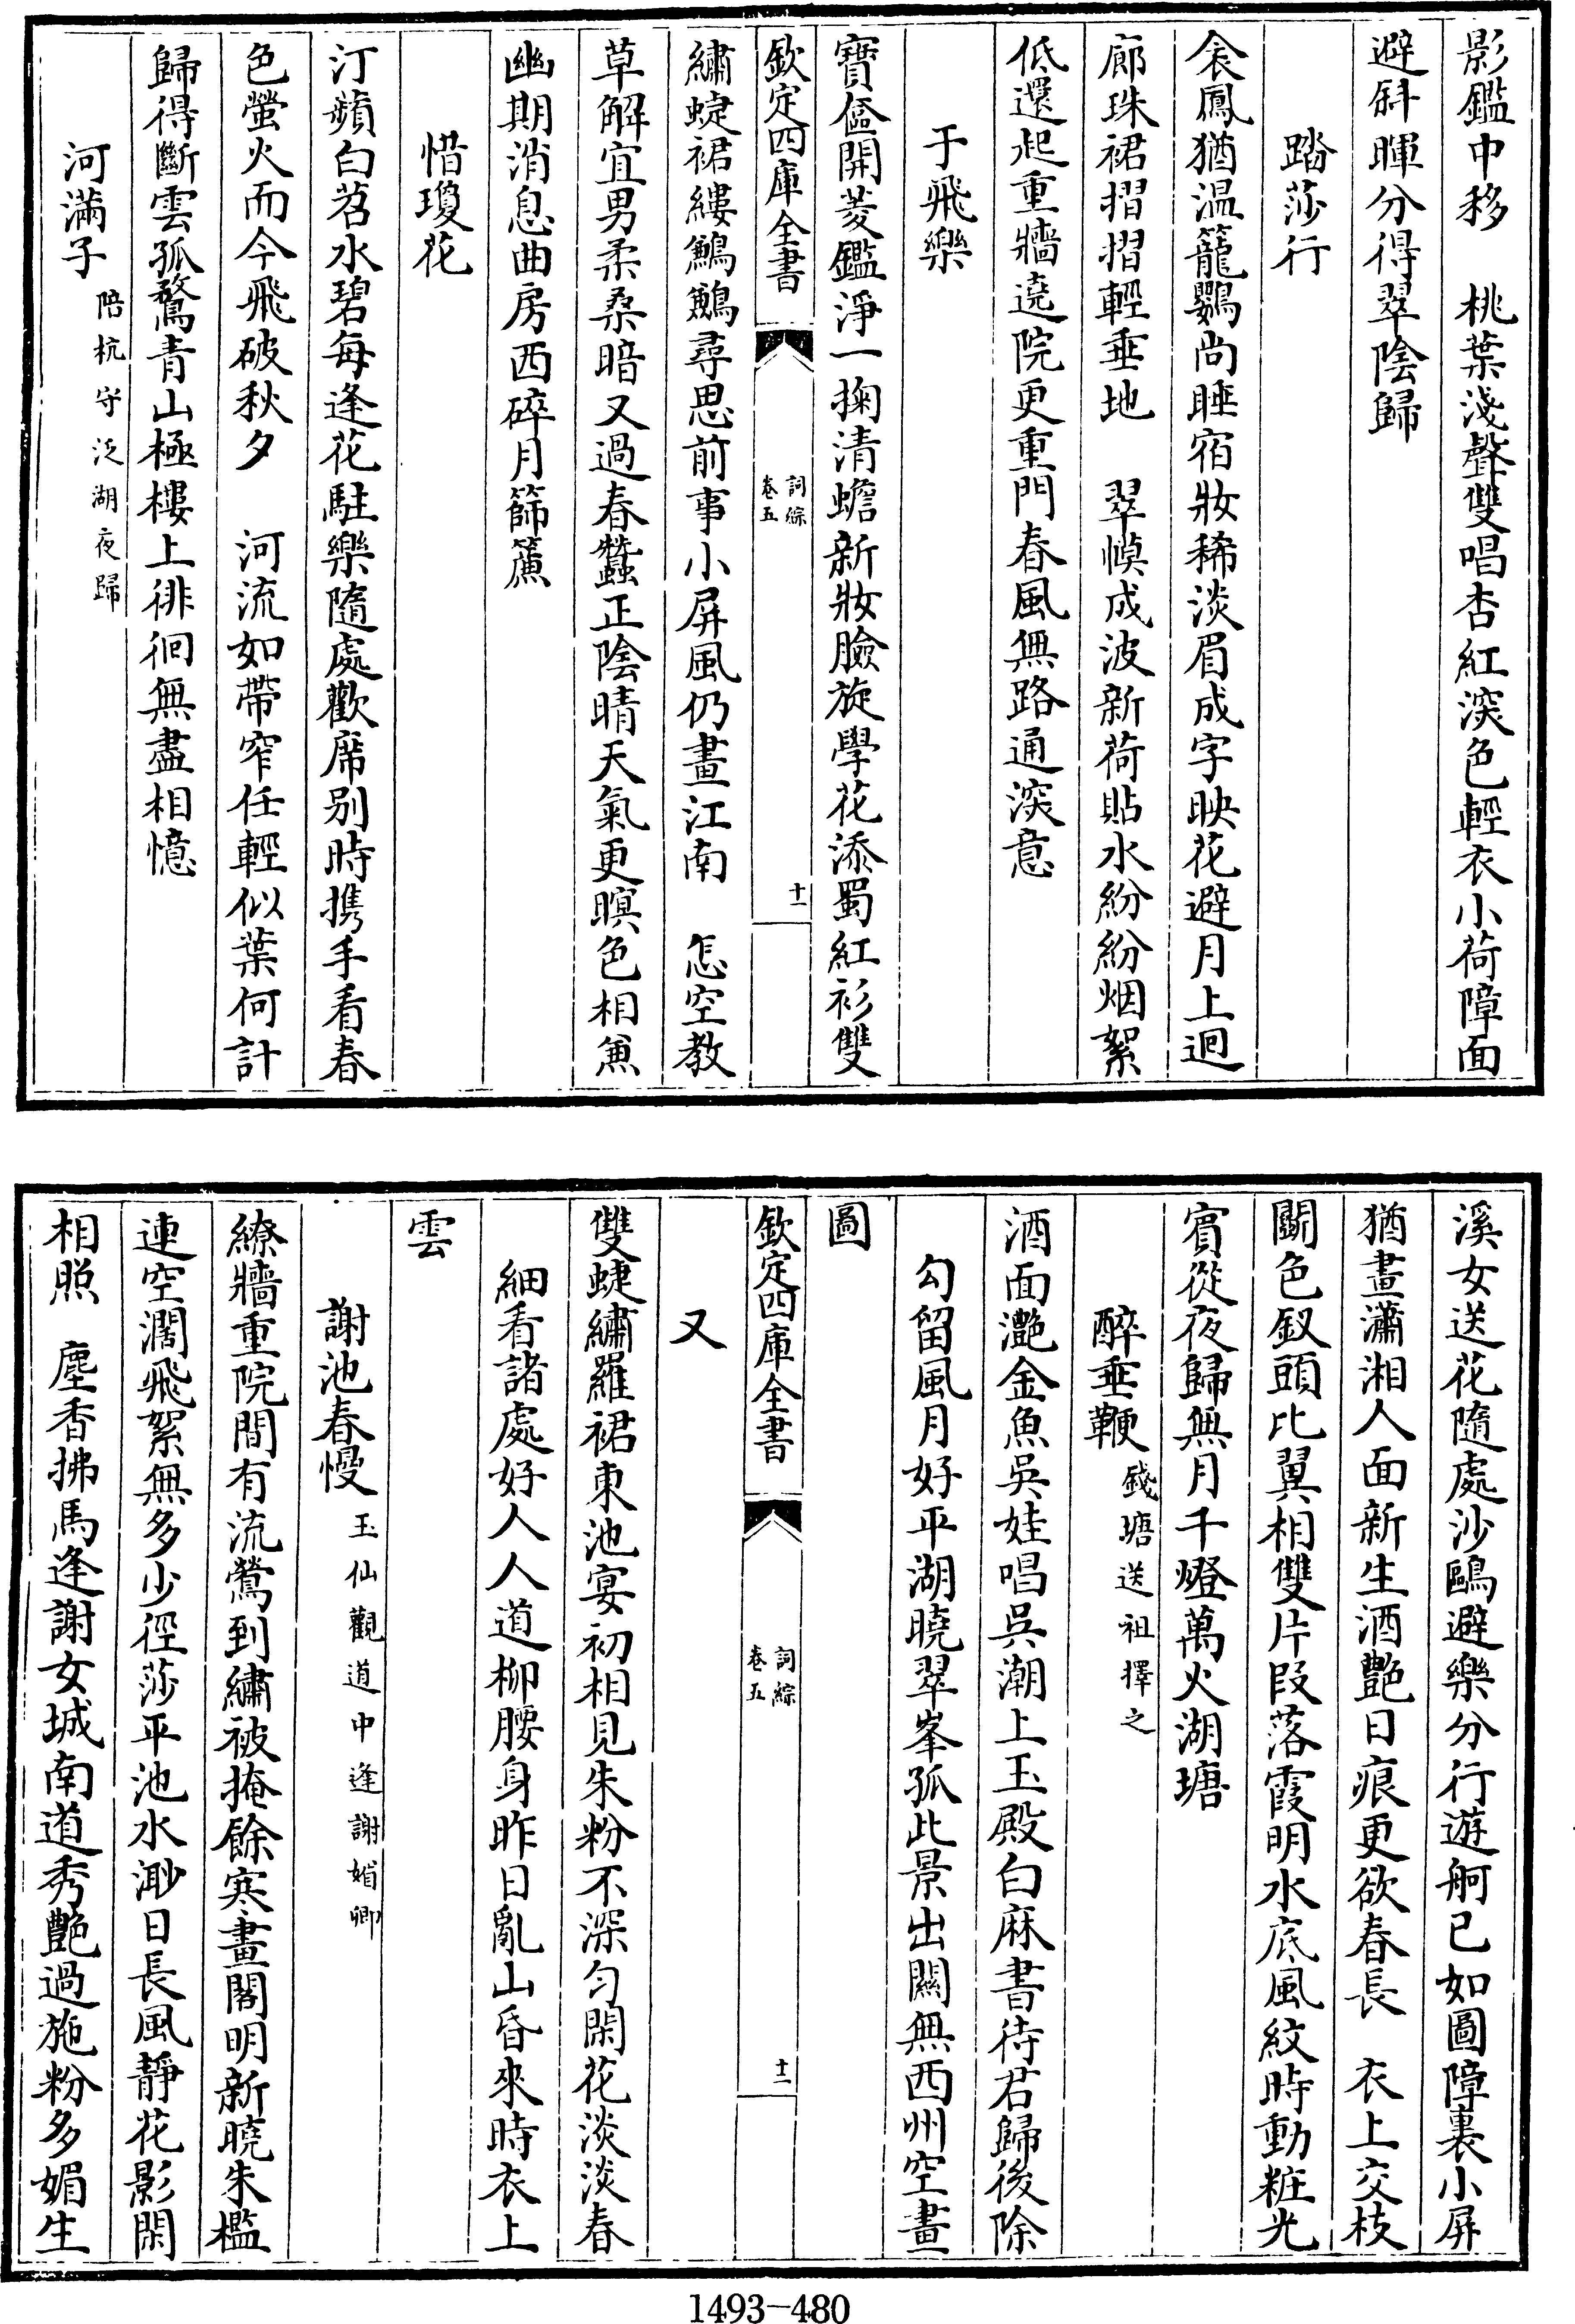 影鑑中移　桃葉淺聲雙唱杏紅深色輕衣小荷障面
避斜暉分得翠陰歸
踏莎行
衾鳳猶温籠鸚尚睡宿妝稀淡眉成字映花避月上迴
廊珠裙摺摺輕垂地　翠幙成波新荷貼水紛紛烟絮
低還起重牆遶院更重門春風無路通深意
于飛樂
寶奩開菱鑑淨一掬清蟾新妝臉旋學花添蜀紅衫雙
欽定四庫全書
詞綜
卷五
十一
繡蜨裙縷鶼鶼尋思前事小屏風仍畫江南　怎空教
草解宜男柔桑暗又過春蠶正陰晴天氣更暝色相兼
幽期消息曲房西碎月篩簾
惜瓊花
汀蘋白苕水碧每逢花駐樂隨處歡席別時携手看春
色螢火而今飛破秋夕　河流如帶窄任輕似葉何計
歸得斷雲孤鶩青山極樓上徘徊無盡相憶
河滿子 陪杭守泛湖夜歸
溪女送花隨處沙鷗避樂分行遊舸已如圖障裏小屏
猶畫瀟湘人面新生酒艷日痕更欲春長　衣上交枝
鬬色釵頭比翼相雙片段落霞明水底風紋時動粧光
賓從夜歸無月千燈萬火湖塘
醉垂鞭 錢塘送祖擇之
酒面灔金魚吳娃唱吳潮上玉殿白麻書待君歸後除
勾留風月好平湖曉翠峯孤此景出關無西州空畫
圖
欽定四庫全書
詞綜
卷五
十二
又
雙蜨繡羅裙東池宴初相見朱粉不深匀閑花淡淡春
細看諸處好人人道柳腰身昨日亂山昏來時衣上
雲
謝池春慢 玉仙觀道中逢謝媚卿
繚牆重院間有流鶯到繡被掩餘寒畫閣明新曉朱檻
連空濶飛絮無多少徑莎平池水渺日長風靜花影閑
相照　塵香拂馬逢謝女城南道秀艷過施粉多媚生
1493-480